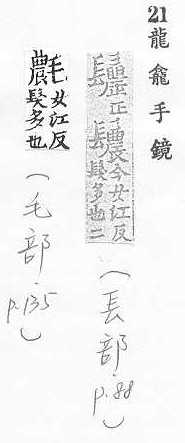 21 龍龕手鏡
正 今女江反髮多也二
(镸部. p.88)
女江反髮多也
(毛部. p.135)